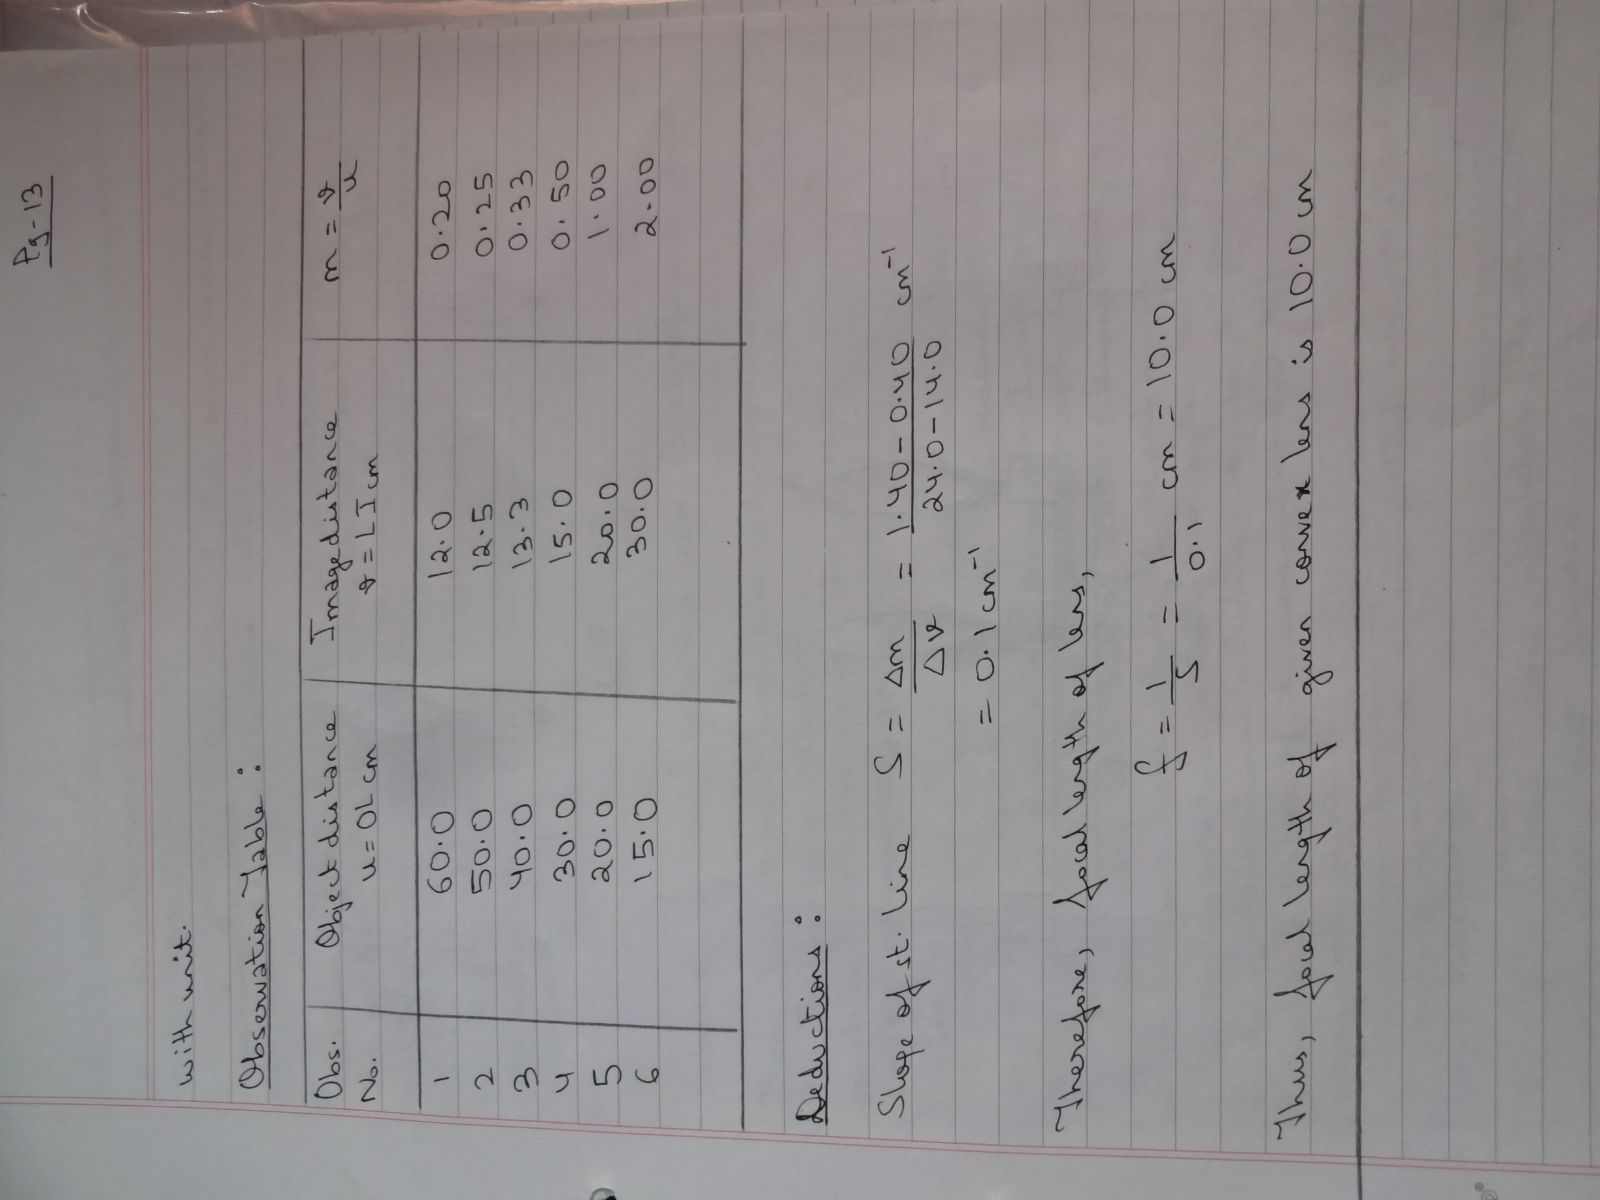 Pg-13
with unit.
Observation Table :
Obs. No. Object distance u = OL cm Image distance v = LI cm m = v/u
1 60.0 12.0 0.20
2 50.0 12.5 0.25
3 40.0 13.3 0.33
4 30.0 15.0 0.50
5 20.0 20.0 1.00
6 15.0 30.0 2.00
Deductions :
Slope of st. line S = Δm/Δv = 1.40-0.40/24.0-14.0 cm⁻¹
= 0.1 cm⁻¹
Therefore, focal length of lens,
f = 1/S = 1/0.1 cm = 10.0 cm
Thus, focal length of given convex lens is 10.0 cm